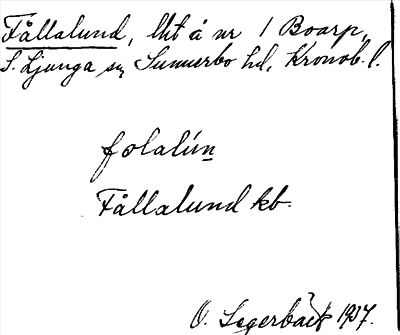 Fållalund, lht å nr 1 Boarp,
S. Ljunga sn, Sunnerbo hd, Kronob. l.
folalún
Fållalund kb.
O. Segerbäck 1937.